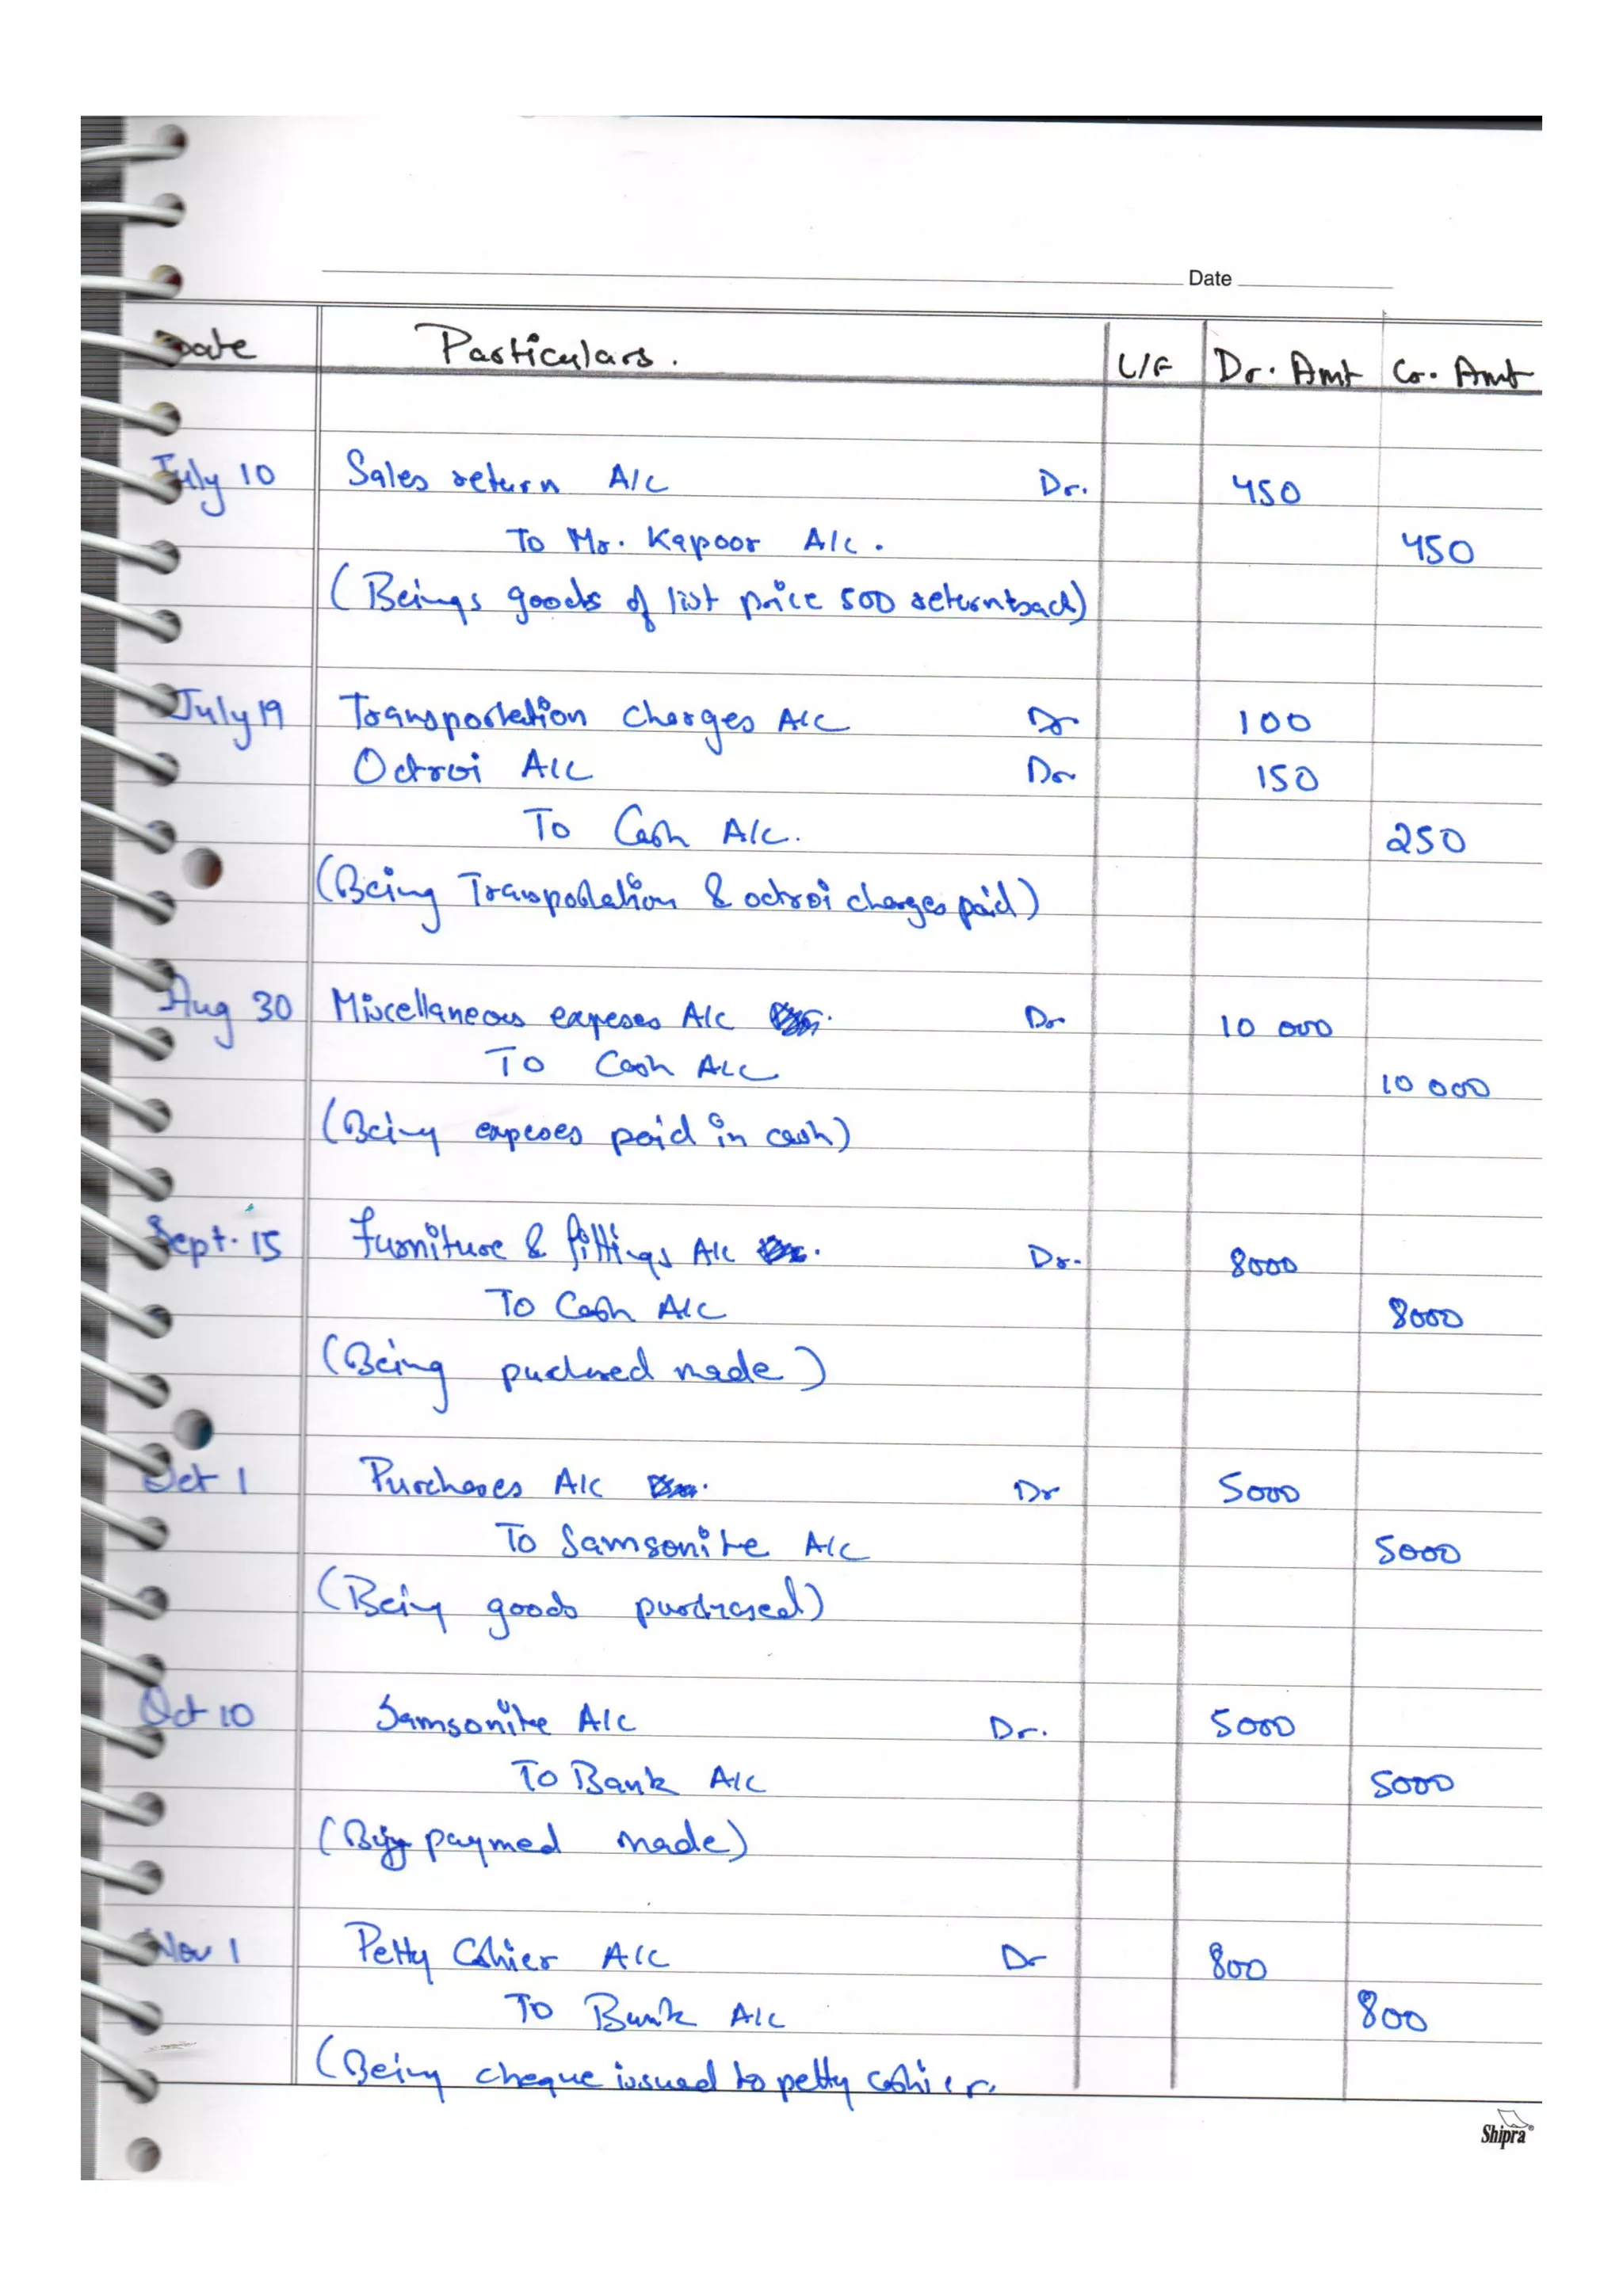 Date
Date Particulars. L/F Dr. Amt Cr. Amt
July 10 Sales return A/c Dr. 450
To Mr. Kapoor A/c. 450
(Beings goods of list price 500 returnback)
July 19 Transportation charges A/c Dr 100
Octroi A/c Dr 150
To Cash A/c. 250
(Being Transportation & octroi charges paid)
Aug 30 Miscellaneous expeses A/c Dr 10 000
To Cash A/c 10 000
(Being expeses paid in cash)
Sept. 15 Furniture & fittings A/c Dr. 8000
To Cash A/c 8000
(Being made)
Oct 1 Purchases A/c Dr 5000
To Samsonite A/c 5000
(Being goods purchased)
Oct 10 Samsonite A/c Dr. 5000
To Bank A/c 5000
(paymed made)
Nov 1 Petty Cashier A/c Dr 800
To Bank A/c 800
(Being cheque issued to petty cashier.
Shipra